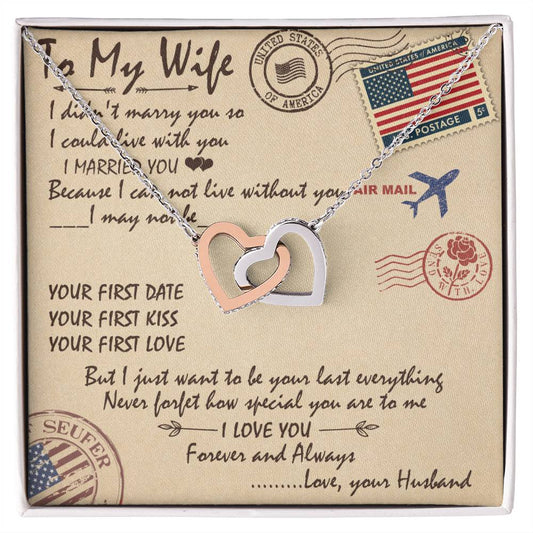 To My Wife
UNITED STATES
OF AMERICA
UNITED STATES of AMERICA
U.S. POSTAGE 5¢
I didn't marry you so
I could live with you
I MARRIED YOU
Because I can not live without you
AIR MAIL
___I may not be_
SEND WITH LOVE
YOUR FIRST DATE
YOUR FIRST KISS
YOUR FIRST LOVE
But I just want to be your last everything
Never forfet how special you are to me
I LOVE YOU
Forever and Always
.........Love, your Husband
T SEUFER